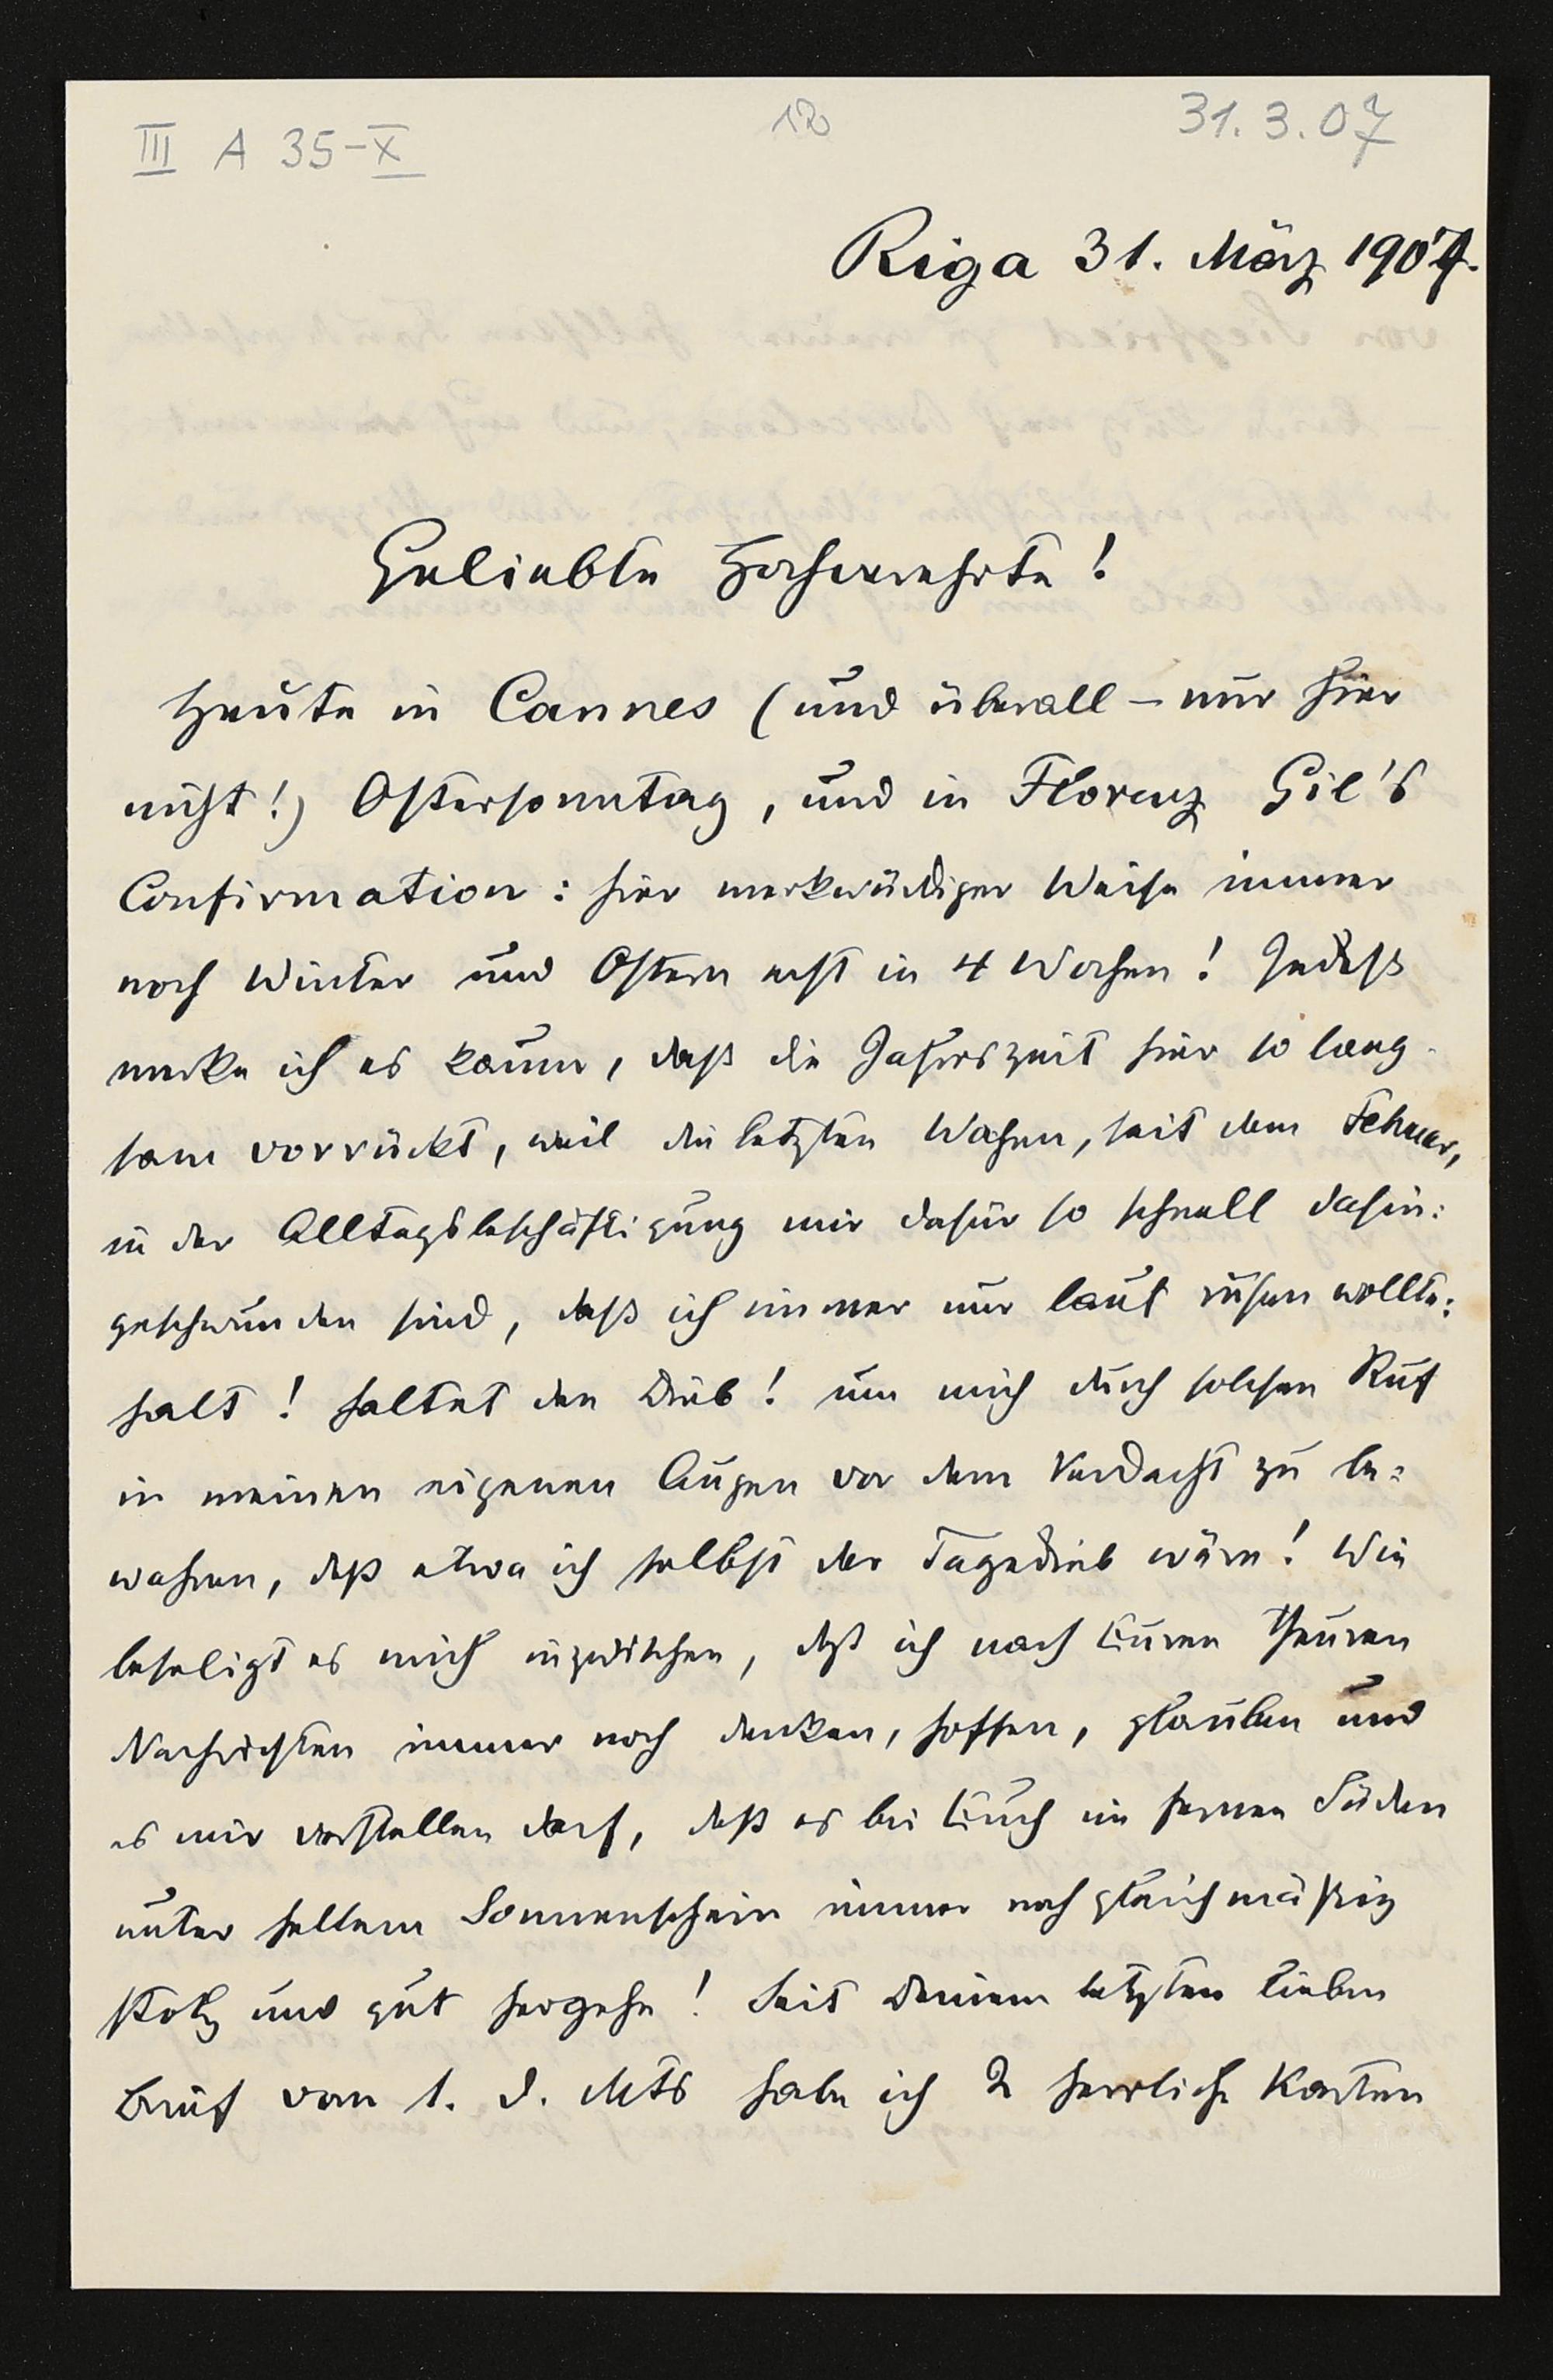 III A 35-X
12
31.3.07
Riga 31. März 1907.
Geliebte Hochverehrte!
Heute in Cannes (und überall – nur hier
nicht!) Ostersonntag, und in Florenz Gil's
Confirmation: hier merkwürdiger Weise immer
noch Winter und Ostern erst in 4 Wochen! Indeß
merke ich es kaum, daß die Jahreszeit hier so lang-
sam vorrückt, weil die letzten Wochen, seit dem Februar,
in der Alltagsbeschäftigung mir dafür so schnell dahin:
geschwunden sind, daß ich immer nur laut rufen wollte:
halt! haltet den Dieb! um mich durch solchen Ruf
in meinen eigenen Augen vor dem Verdacht zu be=
wahren, daß etwa ich selbst der Tagedieb wäre! Wie
beseligt es mich inzwischen, daß ich nach Euren theuren
Nachrichten immer noch denken, hoffen, glauben und
es mir vorstellen darf, daß es bei Euch im fernen Süden
unter hellem Sonnenschein immer noch gleichmäßig
stolz und gut hergehe! Seit Deinem letzten lieben
Brief vom 1. d. Mts habe ich 2 herrliche Karten